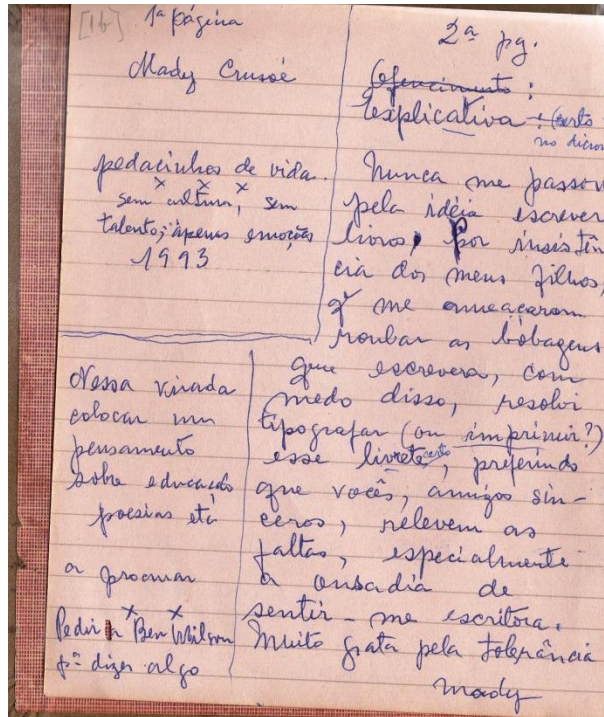 [1b] 1ª página
Mady Crusoé
pedacinhos de vida.
x x x
sem cultura, sem
talento; apenas emoções
1993
Nessa virada
colocar um
pensamento
sobre educação
poesias etc
a procurar
x x
Pedir a Ben Wilson
pª dizer algo
2ª pg.
Oferecimento:
Explicativa: (certo
no dicion
Nunca me passou
pela idéia escrever
livros, por insistên
cia dos meus filhos,
q̃ me ameaçaram
roubar as bobagens
que escrevera, com
medo disso, resolvi
tipografar (ou imprimir?)
esse livrete certo, preferindo
que vocês, amigos sin-
ceros, relevem as
faltas, especialmente
a ousadia de
sentir-me escritora.
Muito grata pela tolerância
Mady